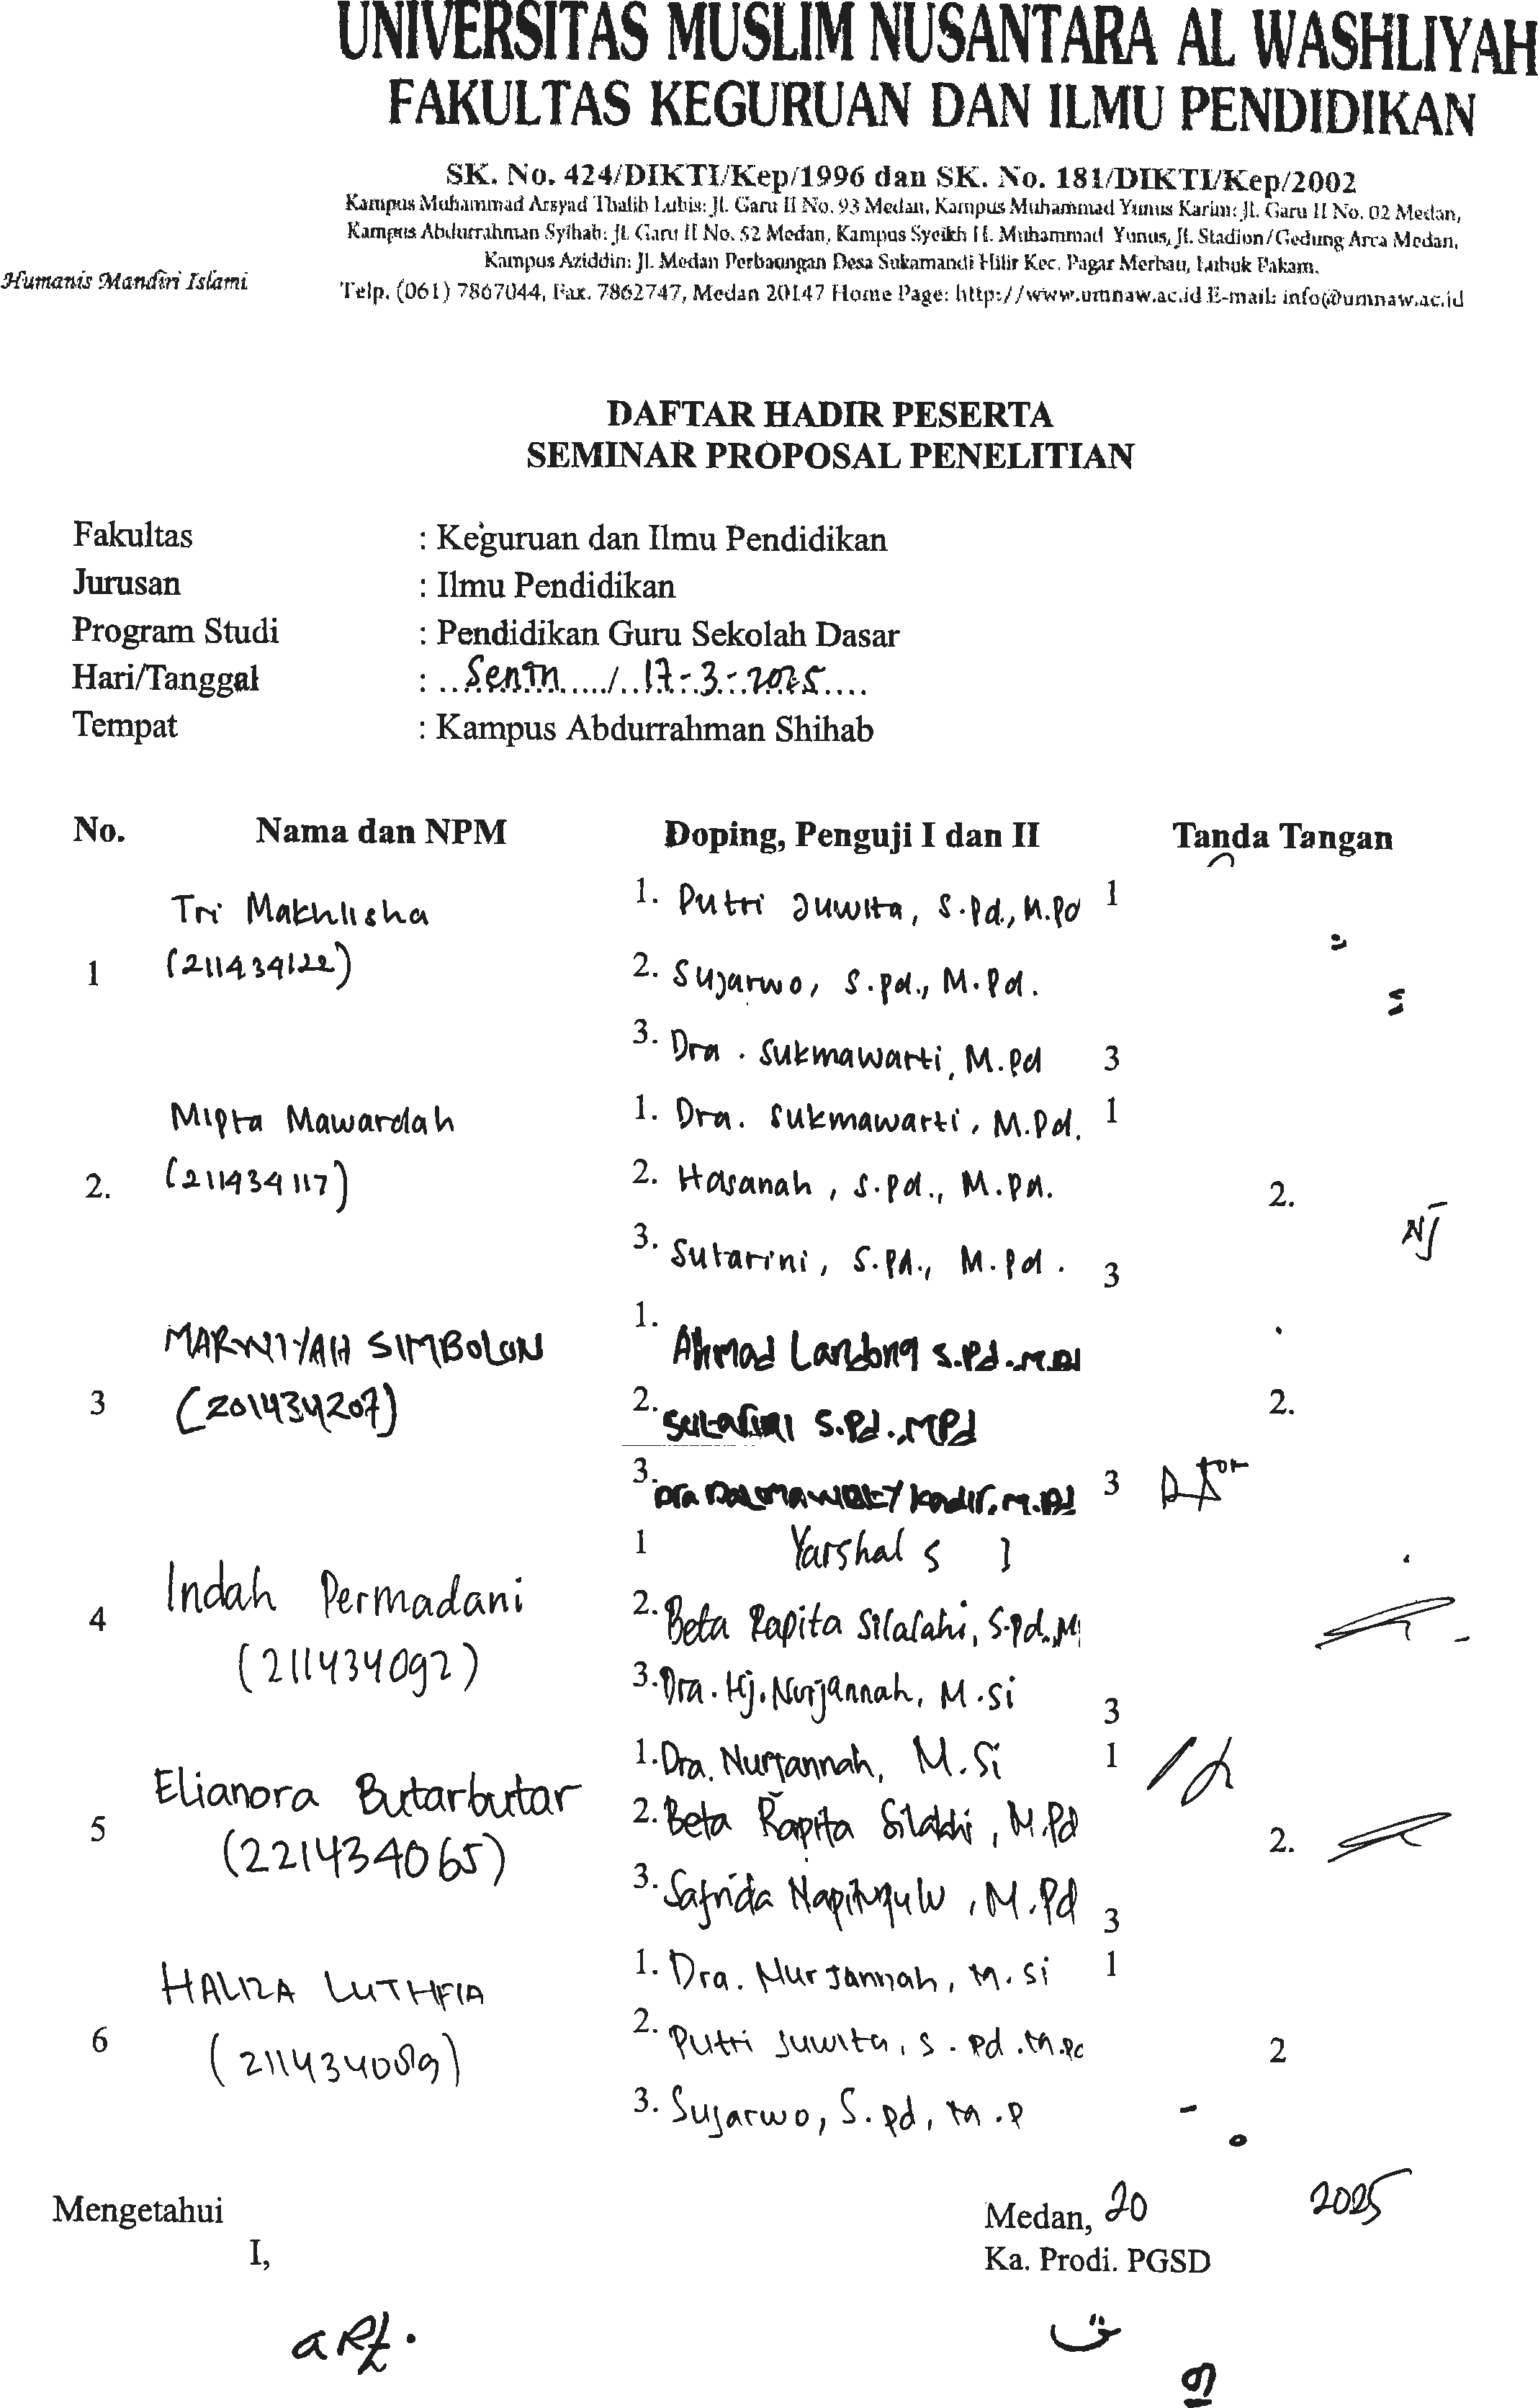 UNIVERSITAS MUSLIM NUSANTARA AL WASHLIYAH
FAKULTAS KEGURUAN DAN ILMU PENDIDIKAN
SK. No. 424/DIKTI/Kep/1996 dan SK. No. 181/DIKTI/Kep/2002
Kampus Muhammad Arsyad Thalib Lubis: Jl. Garu II No. 93 Medan, Kampus Muhammad Yunus Karim: Jl. Garu II No. 02 Medan,
Kampus Abdurrahman Syihab: Jl. Garu II No. 52 Medan, Kampus Syeikh H. Muhammad Yunus, Jl. Stadion/Gedung Arca Medan,
Kampus Aziddin: Jl. Medan Perbaungan Desa Sukamandi Hilir Kec. Pagar Merbau, Lubuk Pakam.
Humanis Mandiri Islami
Telp. (061) 7867044, Fax. 7862747, Medan 20147 Home Page: http://www.umnaw.ac.id E-mail: info@umnaw.ac.id
DAFTAR HADIR PESERTA
SEMINAR PROPOSAL PENELITIAN
Fakultas : Keguruan dan Ilmu Pendidikan
Jurusan : Ilmu Pendidikan
Program Studi : Pendidikan Guru Sekolah Dasar
Hari/Tanggal : Senin / 17-3-2025
Tempat : Kampus Abdurrahman Shihab
No. Nama dan NPM Doping, Penguji I dan II Tanda Tangan
Tri Makhlisha 1. Putri Juwita, S.Pd., M.Pd 1
1 (211434122) 2. Sujarwo, S.Pd., M.Pd.
3. Dra. Sukmawarti, M.Pd 3
Mipta Mawardah 1. Dra. Sukmawarti, M.Pd. 1
2. (211434117) 2. Hasanah, S.Pd., M.Pd. 2.
3. Sutarini, S.Pd., M.Pd. 3
SIMBOLON 1. Ahmad Landong S.Pd.
3 (201434207) 2. Sutarini S.Pd., MPd 2.
3. Dra Kadir, M.Pd 3
1 Yarshal S 1
4 Indah Permadani 2. Beta Rapita Silalahi, S.Pd., M
(211434092) 3. Dra. Hj. Nurjannah, M.Si 3
1. Dra. Nurjannah, M.Si 1
Elianora Butarbutar
5 (221434065) 2. Beta Rapita Silalahi, M.Pd 2.
3. Safrida Napitupulu, M.Pd 3
HALIZA LUTHFIA 1. Dra. Nurjannah, M.Si 1
6 (211434089) 2. Putri Juwita, S.Pd. M.Pd 2
3. Sujarwo, S.Pd, M.P
Mengetahui Medan, 20 2025
I, Ka. Prodi. PGSD